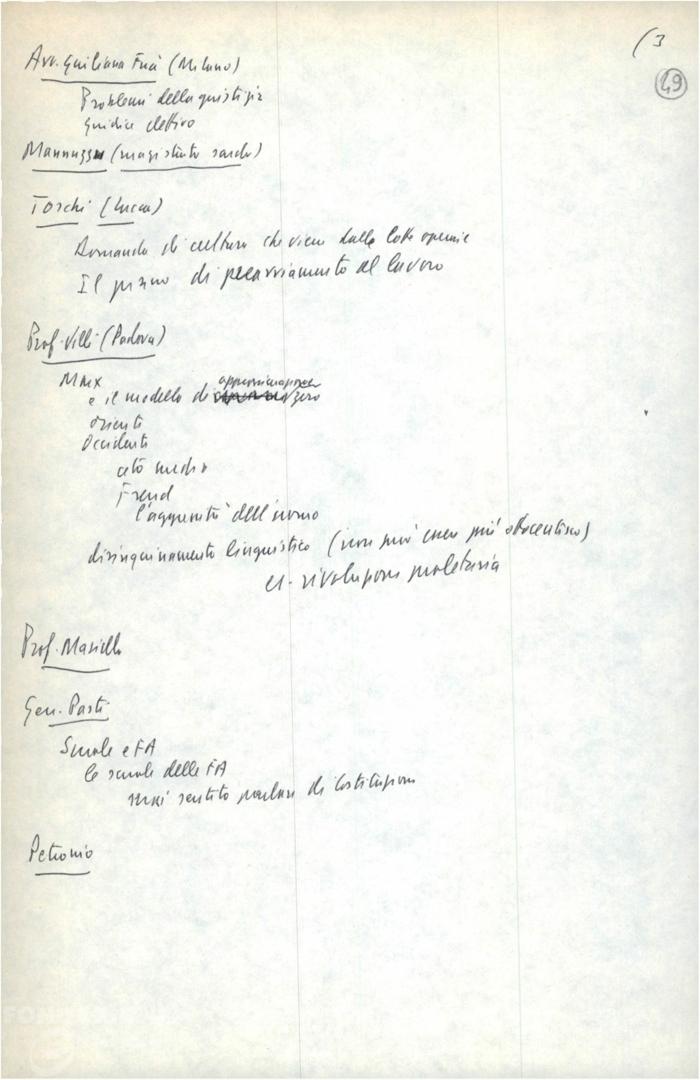 (3
49
Avv. Giuliana Fuà (Milano)
Problemi della giustizia
giudice elettivo
Mannuzzu (magistrato sardo)
Torchi (Lucca)
Domanda di cultura che viene dalle lotte operaie
Il piano di preavviamento al lavoro
Prof. Villi (Padova)
Marx
e il modello di approssimazione zero
oriente
Occidente
ceto medio
Freud
l'aggressività dell'uomo
disinquinamento linguistico (non può essere più ottocentesco)
es. rivoluzione proletaria
Prof. Masiello
Gen. Pasti
Scuole e FA
le scuole delle FA
mai sentito parlare di Costituzione
Petronio